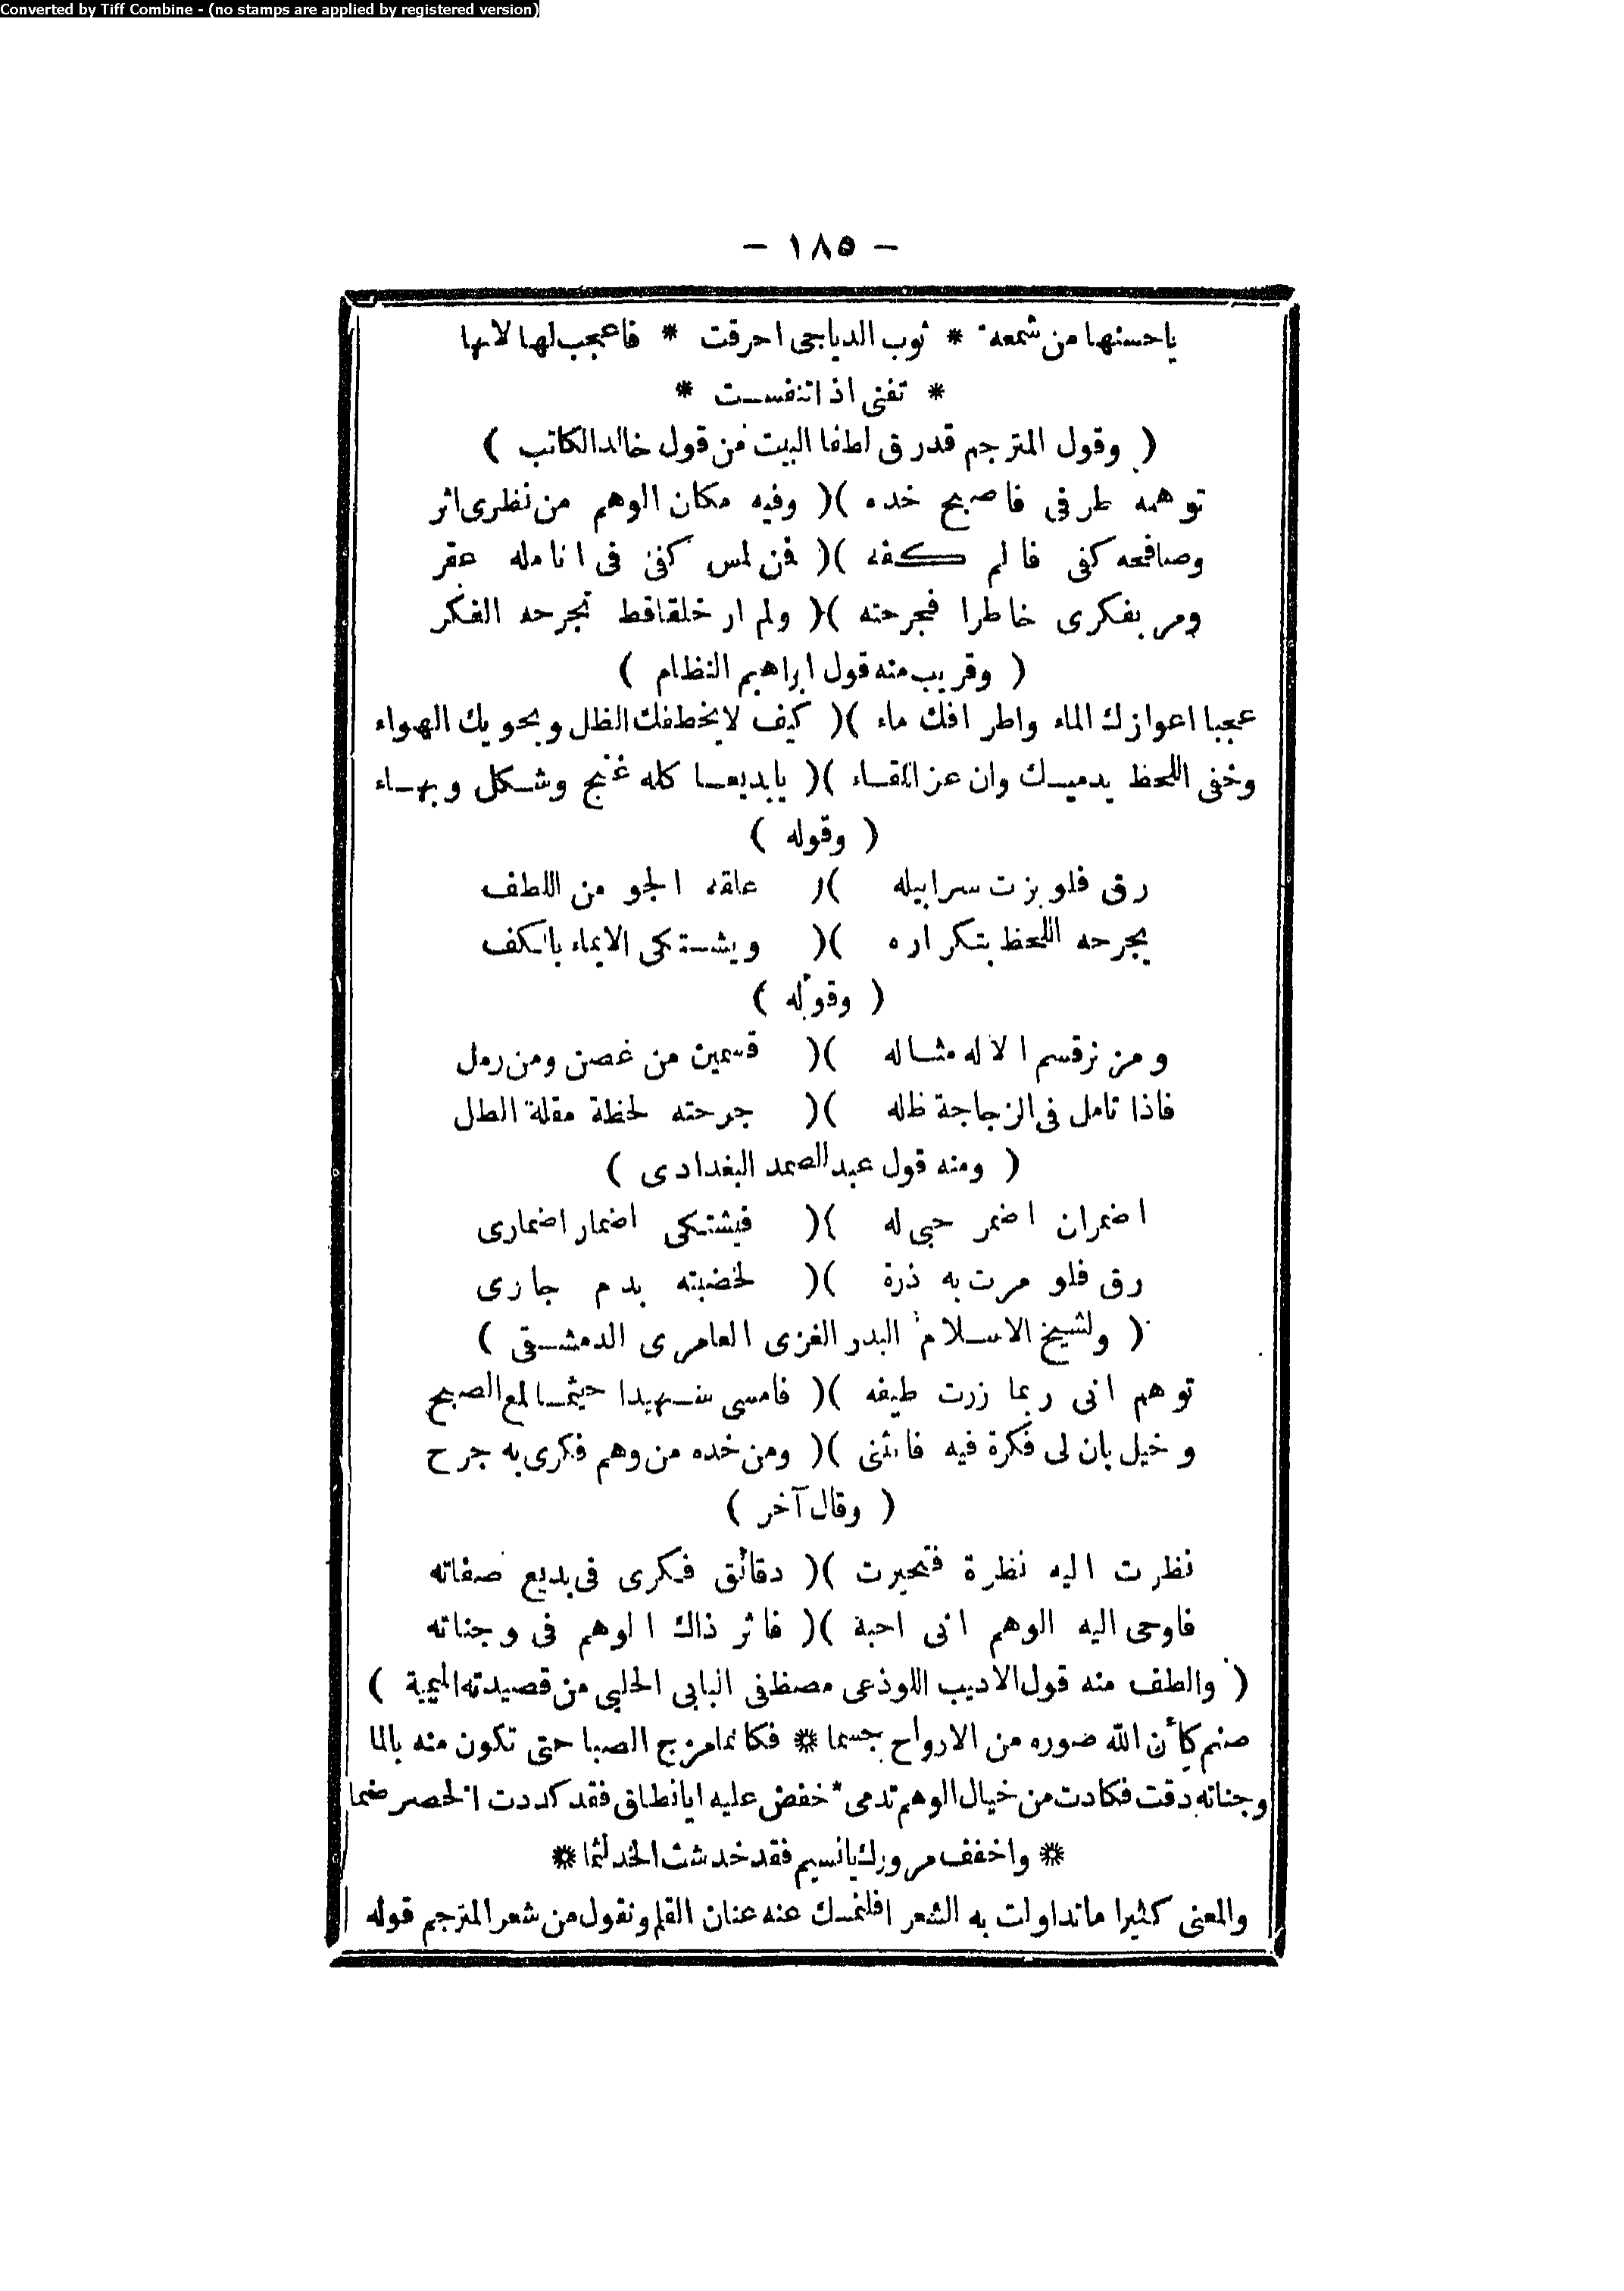 Converted by Tiff Combine - (no stamps are applied by registered version)
- ١٨٥ -
ياحسنها من شمعة * ثوب الدياجى احرقت * فاعجب لها لانها
* تفنى اذا تنفست *
( وقول المترجم قدرق لطفا البيت من قول خالد الكاتب )
توهمه طرفى فاصبح خده )( وفيه مكان الوهم من نظرى اثر
وصافحه كفى فالم كفه )( فمن لمس كفى فى انامله عقر
ومر بفكرى خاطرا فجرحته )( ولم ار خلقا قط تجرحه الفكر
( وقريب منه قول ابراهيم النظام )
عجبا اعوازك الماء واطرافك ماء )( كيف لا يخطفك الظل ويحويك الهواء
وخفى اللحظ يدميك وان عز اللقاء )( يابديعا كله غنج وشكل وبهاء
( وقوله )
رق فلو بزت سرابيله )( علقه الجو من اللطف
يجرحه اللحظ بتكراره )( ويشتكى الايماء بالكف
( وقوله )
ومزنر قسم الاله مثاله )( قسمين من غصن ومن رمل
فاذا تامل فى الزجاجة ظله )( جرحته لحظة مقلة الطل
( ومنه قول عبد الصمد البغدادى )
اضمر ان اضمر حبى له )( فيشتكى اضمار اضمارى
رق فلو مرت به ذرة )( لخضبته بدم جارى
( ولشيخ الاسلام البدر الغزى العامرى الدمشقى )
توهم انى ربما زرت طيفه )( فامسى سهيدا حيثما لمع الصبح
وخيل بان لى فكرة فيه فانثنى )( ومن خده من وهم فكرى به جرح
( وقال آخر )
نظرت اليه نظرة فتحيرت )( دقائق فكرى فى بديع صفاته
فاوحى اليه الوهم انى احبة )( فاثر ذاك الوهم فى وجناته
( والطف منه قول الاديب اللوذعى مصطفى البابى الحلبى من قصيدته الميمية )
صنم كأن الله صوره من الارواح جسما * فكانما مزج الصبا حتى تكون منه بالما
وجناته دقت فكادت من خيال الوهم تدمى * خفض عليه ايا نطاق فقد كددت الخصر ضما
* واخفف مرورك يانسيم فقد خدشت الخد لثما *
والمعنى كثيرا ما تداولت به الشعرا فلنمسك عنه عنان القلم ونقول من شعر المترجم قوله